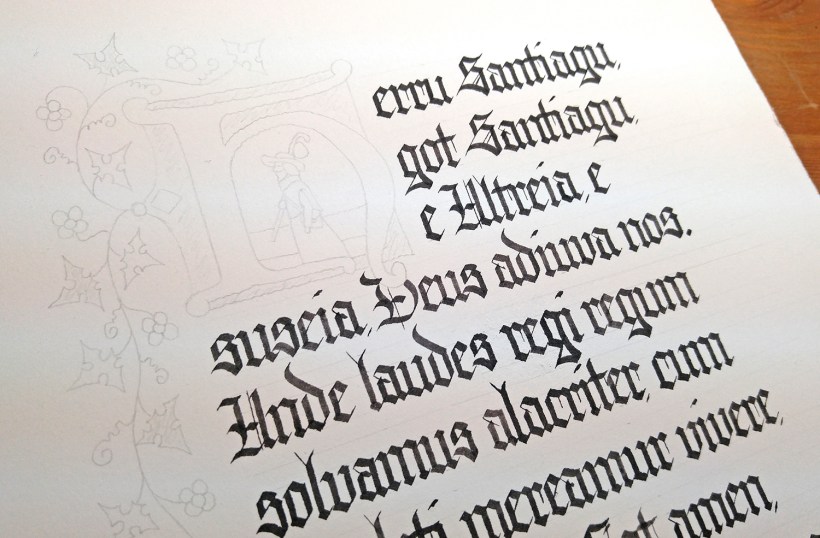 erru Santiagu,
got Santiagu,
e Ultreia, e
suseia, Deus adiuva nos.
Unde laudes regi regum
solvamus alacriter, cum
mereamur vivere,
amen,